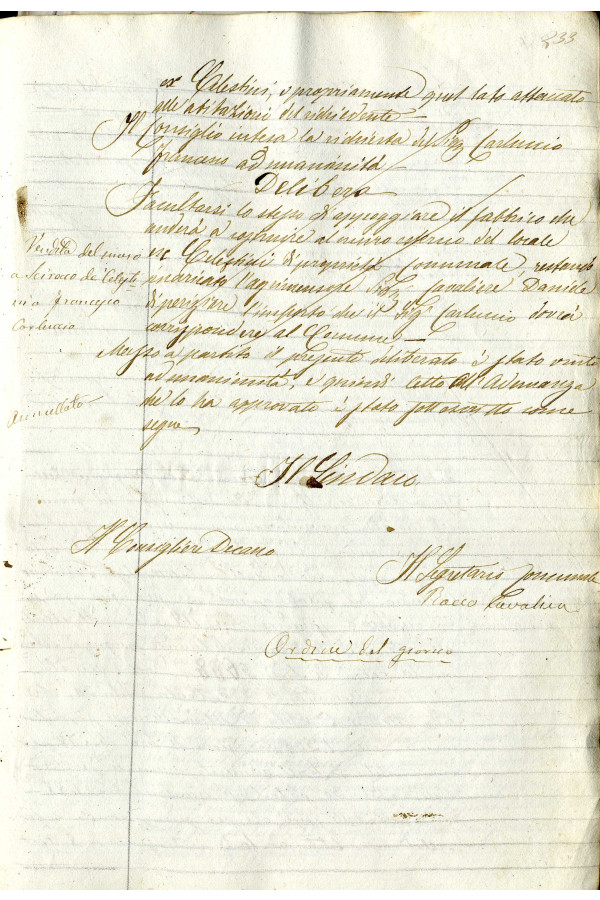 833
ex Celestini, e propriamente quel lato attaccato
alle abitazioni del richiedente
Il Consiglio intesa la richiesta del Sigr Carluccio
Francesco ad unanimità
Delibera
Facultarsi lo stesso di appoggiare il fabbrico che
andrà a costruire al muro esterno del locale
ex Celestini di proprietà Comunale, restando
incaricato l'agrimensore Sigr Cavaliere Daniele
di periziare l'importo che il Sigr Carluccio dovrà
corrispondere al Comune
Messo a partito il presente deliberato è stato votato
ad unanimità, e quindi letto all'Adunanza
che lo ha approvato è stato sottoscritto come
segue
Vendita del muro
a Sirocco de' Celesti
ni a Francesco
Carluccio
Annullato
Il Sindaco
Il Consigliere Decano
Il Segretario Comunale
Rocco Cavaliere
Ordine del giorno